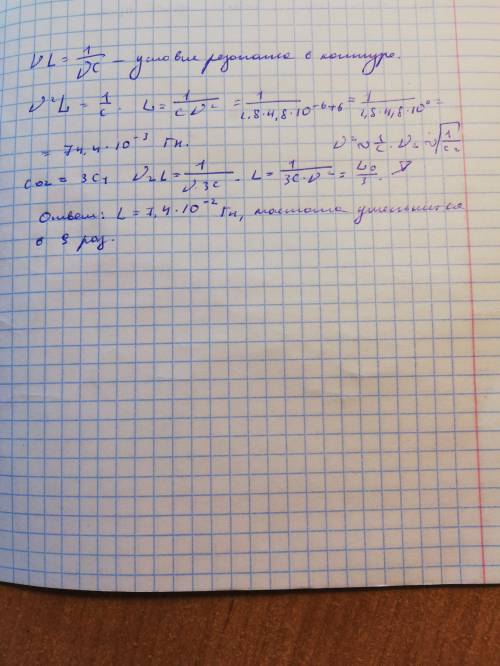 νL = 1/νC – условие резонанса в контуре.
ν²L = 1/C. L = 1/Cν² = 1/(2,8·4,8·10⁻⁶⁺⁶) = 1/(2,8·4,8·10⁰) =
= 74,4·10⁻³ Гн. ν² ~ 1/C. ν₂ ~ √(1/C₂)
C₀₂ = 3C₁ ν₂L = 1/ν3C. L = 1/3C·ν² = L₀/3.
Ответ: L = 7,4·10⁻² Гн, частота уменьшится
в 3 раз.